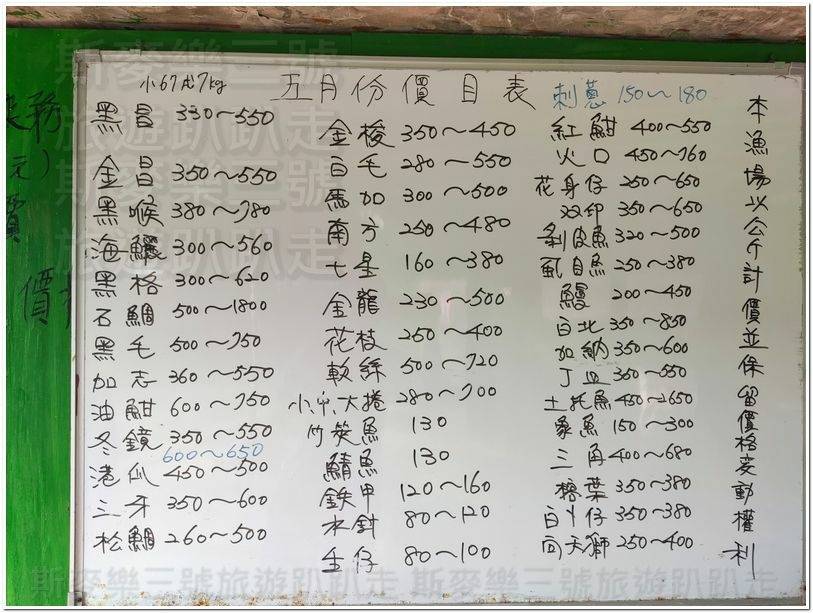 五月份價目表
小67成7kg
黑昌 330~550
金昌 350~550
黑喉 380~780
海鱺 300~560
黑格 300~620
石鯛 500~1800
黑毛 500~750
加志 360~550
油魽 600~750
冬鏡 350~550
600~650
港爪 450~500
三牙 350~600
松鯛 260~500
金梭 350~450
白毛 280~550
馬加 300~500
南方 250~480
七星 160~380
金龍 230~500
花枝 250~400
軟絲 500~720
小中大捲 280~700
竹筴魚 130
鯖魚 130
鉄甲 120~160
水針 80~120
生仔 80~100
刺蔥 150~180
紅魽 400~550
火口 450~760
花身仔 250~650
双印 350~650
剝皮魚 320~500
虱目魚 250~380
鰻 200~450
白北 350~850
加納 350~600
丁皿 350~550
土托魚 450~650
象魚 150~300
三角 400~680
榕葉 350~380
白ㄐ仔 350~380
向天獅 250~400
本漁場以公斤計價並保留價格変動權利
務
元)
價
斯麥樂三號
旅遊趴趴走
斯麥樂三號
旅遊趴趴走
斯麥樂三號旅遊趴趴走 斯麥樂三號旅遊趴趴走